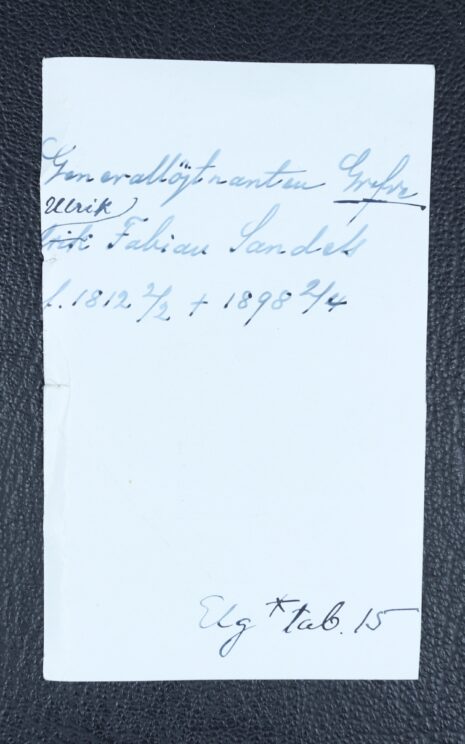 Generallöjtnanten Grefve
Ulrik
Erik Fabian Sandels
f. 1812 2/2 + 1898 2/4
Elg * tab. 15